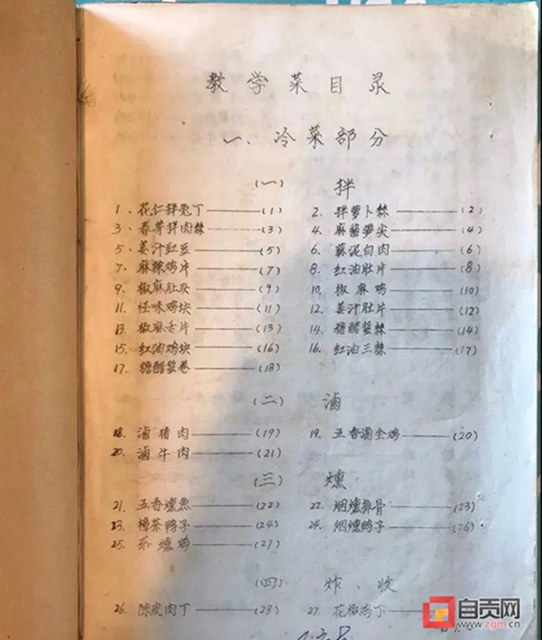 教学菜目录
一、冷菜部分
(一) 拌
1、花仁拌兔丁——(1) 2、拌萝卜丝——(2)
3、春芽拌肉丝——(3) 4、麻酱笋尖——(4)
5、姜汁豇豆——(5) 6、蒜泥白肉——(6)
7、麻辣鸡片——(7) 8、红油肚片——(8)
9、椒麻肚灰——(9) 10、椒麻鸡——(10)
11、怪味鸡块——(11) 12、姜汁肚片——(12)
13、椒麻舌片——(13) 14、糖醋蜇丝——(14)
15、红油鸡块——(16) 16、红油三丝——(17)
17、糖醋蜇卷——(18)
(二) 滷
18、滷猪肉——(19) 19、五香滷全鸡——(20)
20、滷牛肉——(21)
(三) 燻
21、五香燻魚——(22) 22、烟燻排骨——(23)
23、樟茶鸭子——(24) 24、烟燻鸭子——(26)
25、茶燻鸡——(27)
(四) 炸、收
26、陈皮肉丁——(28) 27、花椒鸡丁——
自贡网
www.zgm.cn